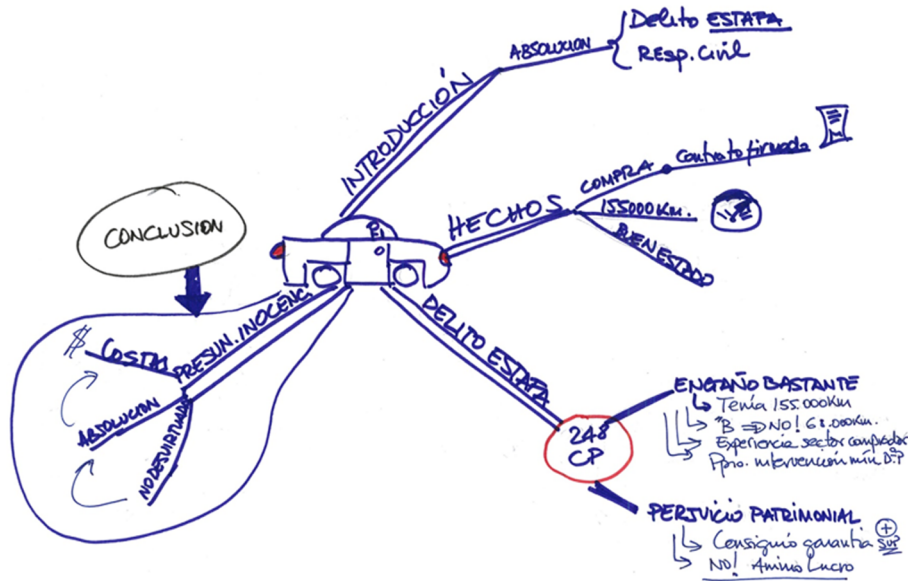 INTRODUCCIÓN
ABSOLUCION
Delito ESTAFA
RESp. Civil
HECHOS
COMPRA
Contrato firmado
155000 Km.
BIEN ESTADO
DELITO ESTAFA
248
CP
ENGAÑO BASTANTE
Tenía 155.000 Km
"B => NO! 68.000 Km.
Experiencia sector comprador
Ppio. intervención mín D.º P
PERJUICIO PATRIMONIAL
Consiguió garantía
+
NO! Animo Lucro
CONCLUSION
PRESUN. INOCENC.
$ COSTAS
ABSOLUCION
NO DESVIRTUADA